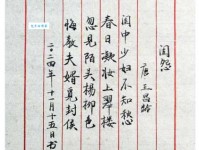 闺怨
唐 王昌龄
闺中少妇不知愁
春日凝妆上翠楼
忽见陌头杨柳色
悔教夫婿觅封侯
二〇二四年十一月十五日书